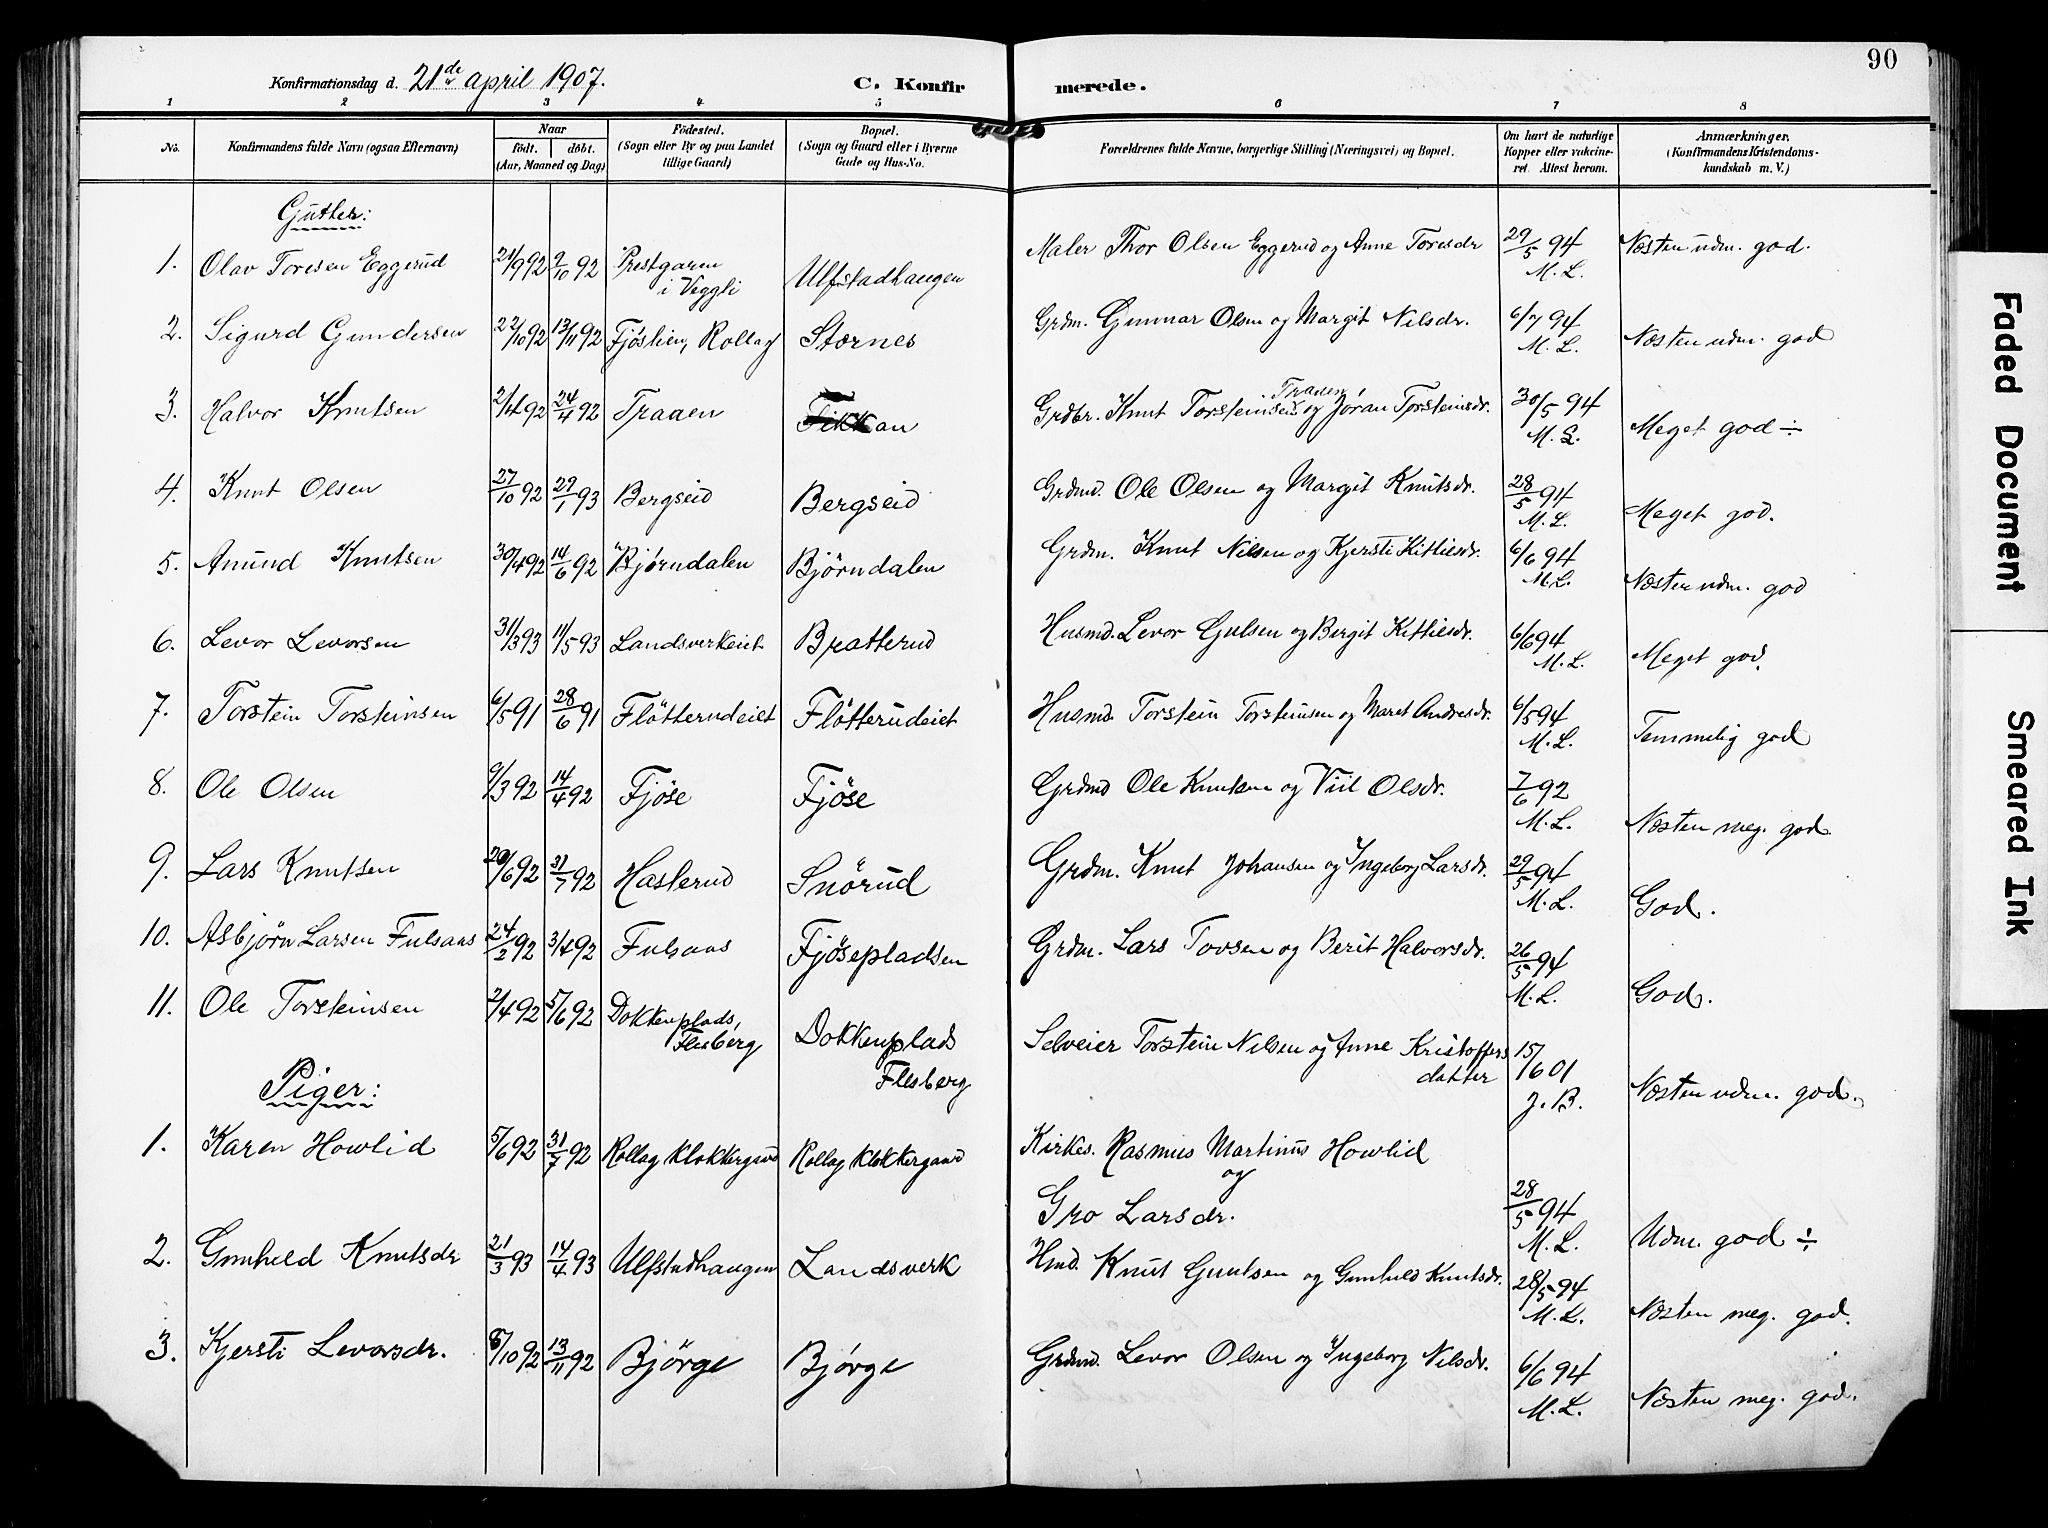 90
Konfirmationsdag d. 21de april 1907. C. Konfirmerede.
1 2 3 4 5 6 7 8
No. Konfirmandens fulde Navn (ogsaa Efternavn) Naar født. døbt. (Aar, Maaned og Dag) Fødested. (Sogn eller By og paa Landet tillige Gaard) Bopæl. (Sogn og Gaard eller i Byerne Gade og Hus-No. Forældrenes fulde Navne, borgerlige Stilling (Næringsvei) og Bopæl. Om havt de naturlige Kopper eller vakcineret. Attest herom. Anmærkninger. (Konfirmandens Kristendomskundskab m. V.)
Gutter:
1. Olav Toresen Eggerud 21/9 92 9/10 92 Prestgarn i Veggli Ulfstadhaugen Maler Thor Olsen Eggerud og Anne Toresdr 29/5 94 M. L. Næsten udm. god.
2. Sigurd Gundersen 22/10 92 13/11 92 Fjøslien, Rollag Stornes Grdm. Gunnar Olsen og Margit Nilsdr. 6/7 94 M. L. Næsten udm. god
3. Halvor Knutsen 2/4 92 24/4 92 Traaen Fikkan Grdbr. Knut Torsteinsen Traaen og Jøran Torsteinsdr. 30/5 94 M. L. Meget god ÷
4. Knut Olsen 27/10 92 29/1 93 Bergseid Bergseid Grdmd. Ole Olsen og Margit Knutsdr. 28/5 94 M. L. Meget god.
5. Amund Knutsen 30/4 92 14/6 92 Bjørndalen Bjørndalen Grdm. Knut Nilsen og Kjersti Kittilsdr. 6/6 94 M. L. Næsten udm. god
6. Levor Levorsen 31/3 93 11/5 93 Landsverkeiet Bratterud Husmd. Levor Gulsen og Bergit Kittilsdr. 6/6 94 M. L. Meget god.
7. Torstein Torsteinsen 6/5 91 28/6 91 Fløtterudeiet Fløtterudeiet Husmd. Torstein Torsteinsen og Maret Andresdr. 6/5 94 M. L. Temmelig god
8. Ole Olsen 9/3 92 14/4 92 Fjøse Fjøse Grdmd Ole Knutsen og Viil Olsdr. 7/6 92 M. L. Næsten meg. god
9. Lars Knutsen 20/6 92 31/7 92 Hasterud Snørud Grdm. Knut Johansen og Ingeborg Larsdr. 29/5 94 M. L. God.
10. Asbjørn Larsen Fulsaas 24/2 92 3/4 92 Fulsaas Fjøsepladsen Grdm. Lars Tovsen og Berit Halvorsdr. 26/5 94 M. L. God.
11. Ole Torsteinsen 2/4 92 5/6 92 Dokkenplads, Flesberg Dokkenplads Flesberg Selveier Torstein Nilsen og Anne Kristoffersdatter 15/6 01 J. B. Næsten udm. god.
Piger:
1. Karen Howlid 5/6 92 31/7 92 Rollag Klokkergaard Rollag Klokkergaard Kirkes. Rasmus Martinus Howlid og Gro Larsdr. 28/5 94 M. L. Udm. god ÷
2. Gunhild Knutsdr 21/3 93 14/4 93 Ulfstadhaugen Landsverk Hmd. Knut Guulsen og Gunhild Knutsdr. 28/5 94 M. L. Næsten meg. god.
3. Kjersti Levorsdr. /10 92 13/11 92 Bjørge Bjørge Grdmd. Levor Olsen og Ingeborg Nilsdr. 6/6 94 M. L. Næsten meg. god.
Faded Document
Smeared Ink